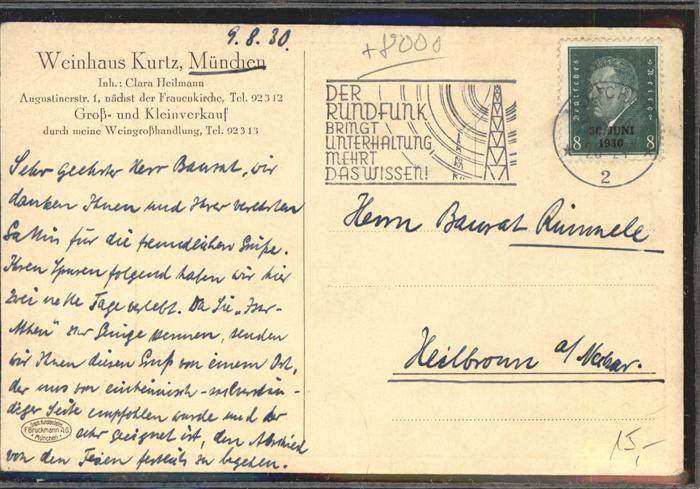 9.8.30.
+8000
Weinhaus Kurtz, München
Inh.: Clara Heilmann
Augustinerstr. 1, nächst der Frauenkirche, Tel. 92312
Groß- und Kleinverkauf
durch meine Weingroßhandlung, Tel. 92313
Sehr geehrter Herr Baurat, wir
danken Ihnen und Ihrer verehrten
Gattin für die freundlichen Grüße.
Ihren Spuren folgend haben wir hier
zwei nette Tage verlebt. Da Sie
zur Genüge kennen, senden
wir Ihnen diesen Gruß von einem Ort,
der uns von einheimisch-sachverstän-
diger Seite empfohlen wurde und der
sehr geeignet ist, den Abschied
von den Ferien festlich zu begehen.
F. Bruckmann A.G.
München
DER
RUNDFUNK
BRINGT
UNTERHALTUNG,
MEHRT
DAS WISSEN!
Deutsches Reich
30. JUNI
1930
8 8
2
Herrn Baurat Rümmele
Heilbronn a/ Neckar.
15,-